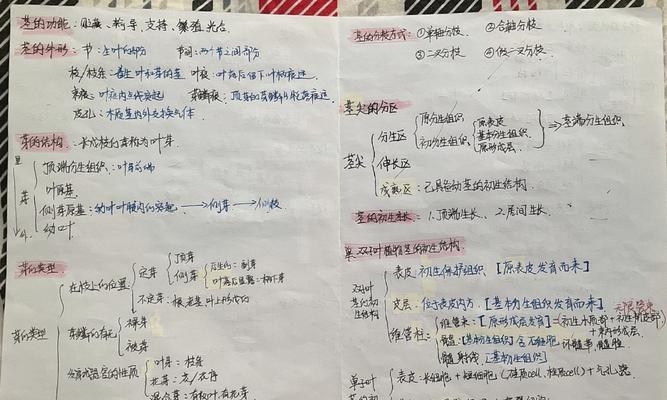 茎的功能：贮藏、输导、支持、繁殖、光合
茎的外形：节：生叶的部分 节间：两个节之间部分
枝/枝条：着生叶和芽的茎 叶痕：叶落后留下叶柄痕迹
束痕：叶痕内点线突起 芽鳞痕：顶芽的芽鳞片脱落痕迹
皮孔：木质茎内外交换气体
芽的结构：
里
芽
外
顶端分生组织：叶芽
叶原基
侧芽原基：幼叶叶腋内的突起→侧芽→侧枝
幼叶
芽的类型
芽的类型
在枝上的位置
定芽
顶芽
侧芽
叶落后显露：柄下芽
不定芽：根、老茎、叶上形成的
芽鳞的有无
裸芽
被芽
发育成器官的性质
叶芽：枝条
花芽：花/花序
混合芽：有枝叶，有花芽
茎的分枝方式：①单轴分枝 ②合轴分枝
③二叉分枝 ④假二叉分枝
茎尖的分区
茎尖
分生区
原分生组织
初分生组织
原表皮
基本分生组织
原形成层
⇒茎端分生组织
伸长区
成熟区：已具备幼茎的初生结构
茎的初生生长：1.顶端生长、2.居间生长
单双子叶植物茎的初生结构
双子叶茎的初生结构
表皮：初生保护组织、【原表皮发育而来】
皮层：位于表皮内方，【基本分生组织发育而来】
维管柱
维管束：【原形成层发育】=（初生木质部+初生韧皮部）
+束内形成层
髓：【基本分生组织】含
髓射线【基本分生组织】
单子叶
表皮：长细胞+短细胞（硅质cell，栓质cell）+气孔器